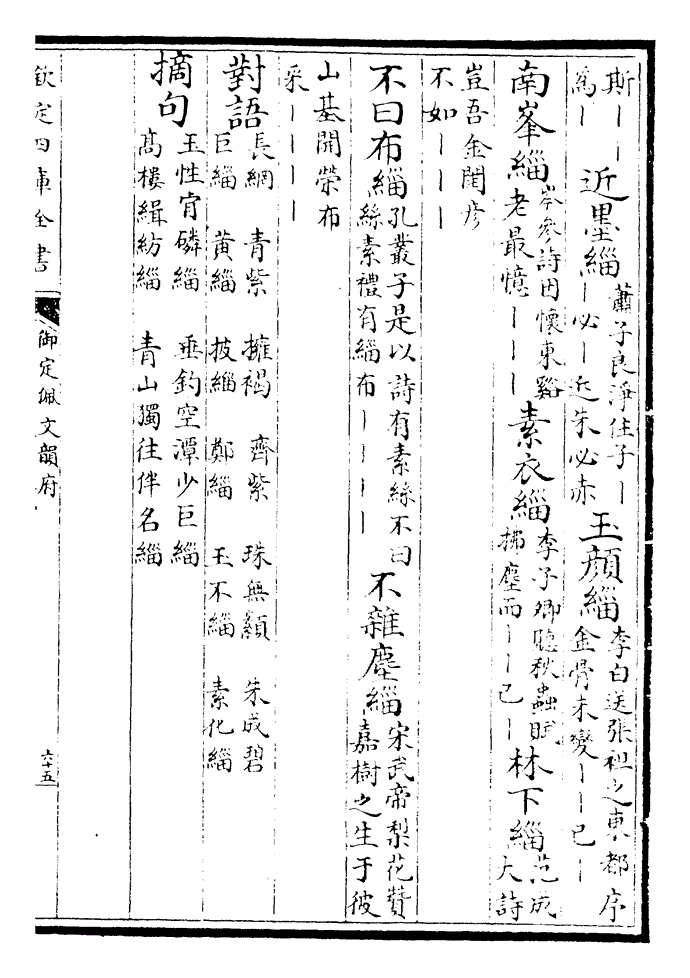 斯丨丨
為丨
近墨緇
蕭子良淨住子丨
丨必丨近朱必赤
玉顔緇
李白送張祖之東都序
金骨未變丨丨已丨
南峯緇
岑參詩因懷東谿
老最憶丨丨丨
素衣緇
李子卿聽秋蟲賦
拂塵而丨丨已丨
林下緇
范成
大詩
豈吾金閨彦
不如丨丨丨
不曰布緇
孔叢子是以詩有素絲不曰
絲素禮有緇布丨丨丨丨
不雜塵緇
宋武帝梨花贊
嘉樹之生于彼
山基開榮布
采丨丨丨丨
對語
長網 青紫 擁褐 齊紫 珠無纇 朱成碧
巨緇 黃緇 披緇 鄭緇 玉不緇 素化緇
摘句
玉性肯磷緇 垂釣空潭少巨緇
髙樓緝紡緇 青山獨往伴名緇
欽定四庫全書
御定佩文韻府
六十五